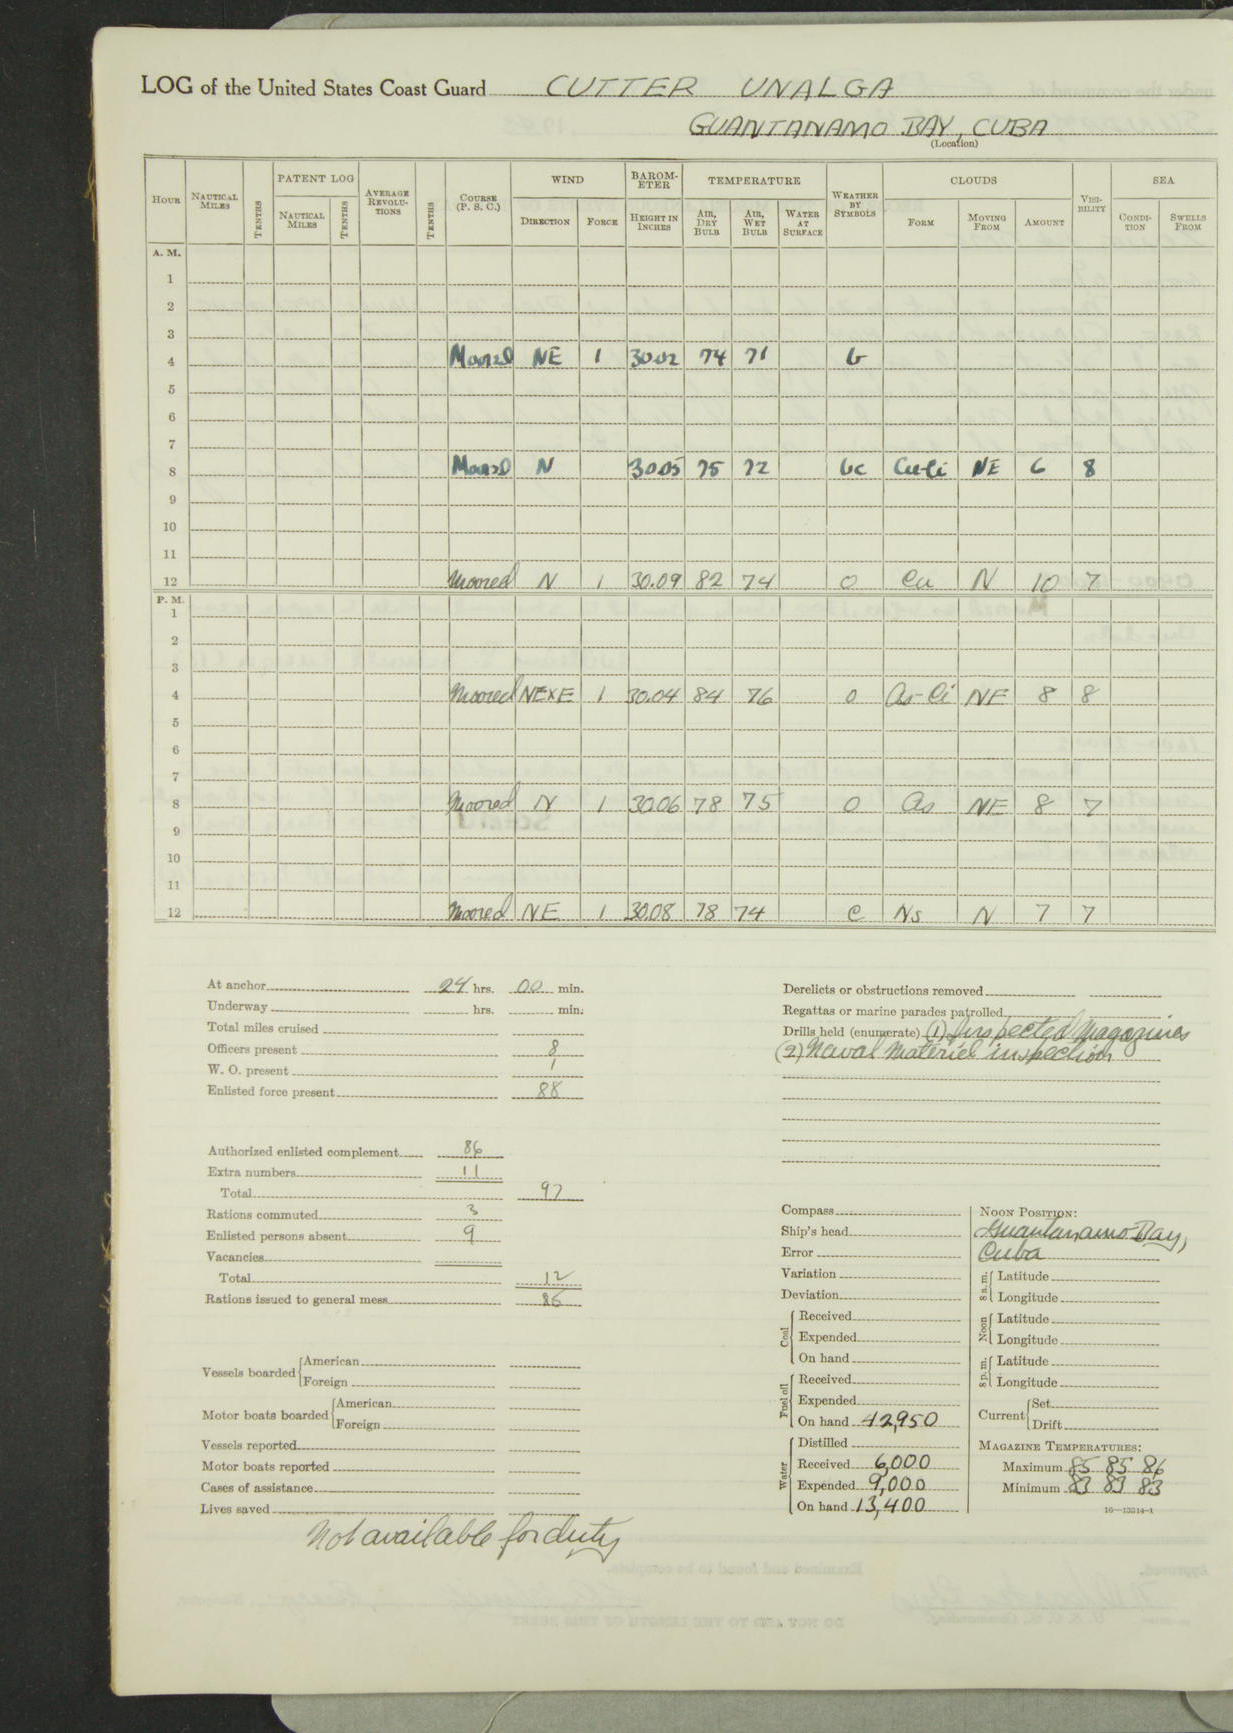 LOG of the United States Coast Guard CUTTER UNALGA
GUANTANAMO BAY, CUBA
(Location)
HOUR NAUTICAL MILES TENTHS PATENT LOG NAUTICAL MILES TENTHS AVERAGE REVOLU-TIONS TENTHS COURSE (P. S. C.) WIND DIRECTION FORCE BAROM-ETER HEIGHT IN INCHES TEMPERATURE AIR, DRY BULB AIR, WET BULB WATER AT SURFACE WEATHER BY SYMBOLS CLOUDS FORM MOVING FROM AMOUNT VISI-BILITY SEA CONDI-TION SWELLS FROM
A. M.
1
2
3
4 Moored NE 1 30.02 74 71 b
5
6
7
8 Moored N 30.05 75 72 bc Cu-Ci NE 6 8
9
10
11
12 Moored N 1 30.09 82 74 O Cu N 10 7
P. M.
1
2
3
4 Moored NExE 1 30.04 84 76 O As-Ci NE 8 8
5
6
7
8 Moored N 1 30.06 78 75 O As NE 8 7
9
10
11
12 Moored NE 1 30.08 78 74 C Ns N 7 7
At anchor 24 hrs. 00 min.
Underway hrs. min.
Total miles cruised
Officers present 8
W. O. present 1
Enlisted force present 88
Authorized enlisted complement 86
Extra numbers 11
Total 97
Rations commuted 3
Enlisted persons absent 9
Vacancies
Total 12
Rations issued to general mess 85
Vessels boarded American
Foreign
Motor boats boarded American
Foreign
Vessels reported
Motor boats reported
Cases of assistance
Lives saved
Not available for duty
Derelicts or obstructions removed
Regattas or marine parades patrolled
Drills held (enumerate) (1) Inspected Magazines
(2) Naval Materiel inspection
Compass
Ship's head
Error
Variation
Deviation
Coal Received
Expended
On hand
Fuel oil Received
Expended
On hand 42,950
Water Distilled
Received 6,000
Expended 9,000
On hand 13,400
NOON POSITION:
Guantanamo Bay,
Cuba
8 a. m. Latitude
Longitude
Noon Latitude
Longitude
8 p. m. Latitude
Longitude
Current Set
Drift
MAGAZINE TEMPERATURES:
Maximum 85 85 86
Minimum 83 83 83
16—13214-1